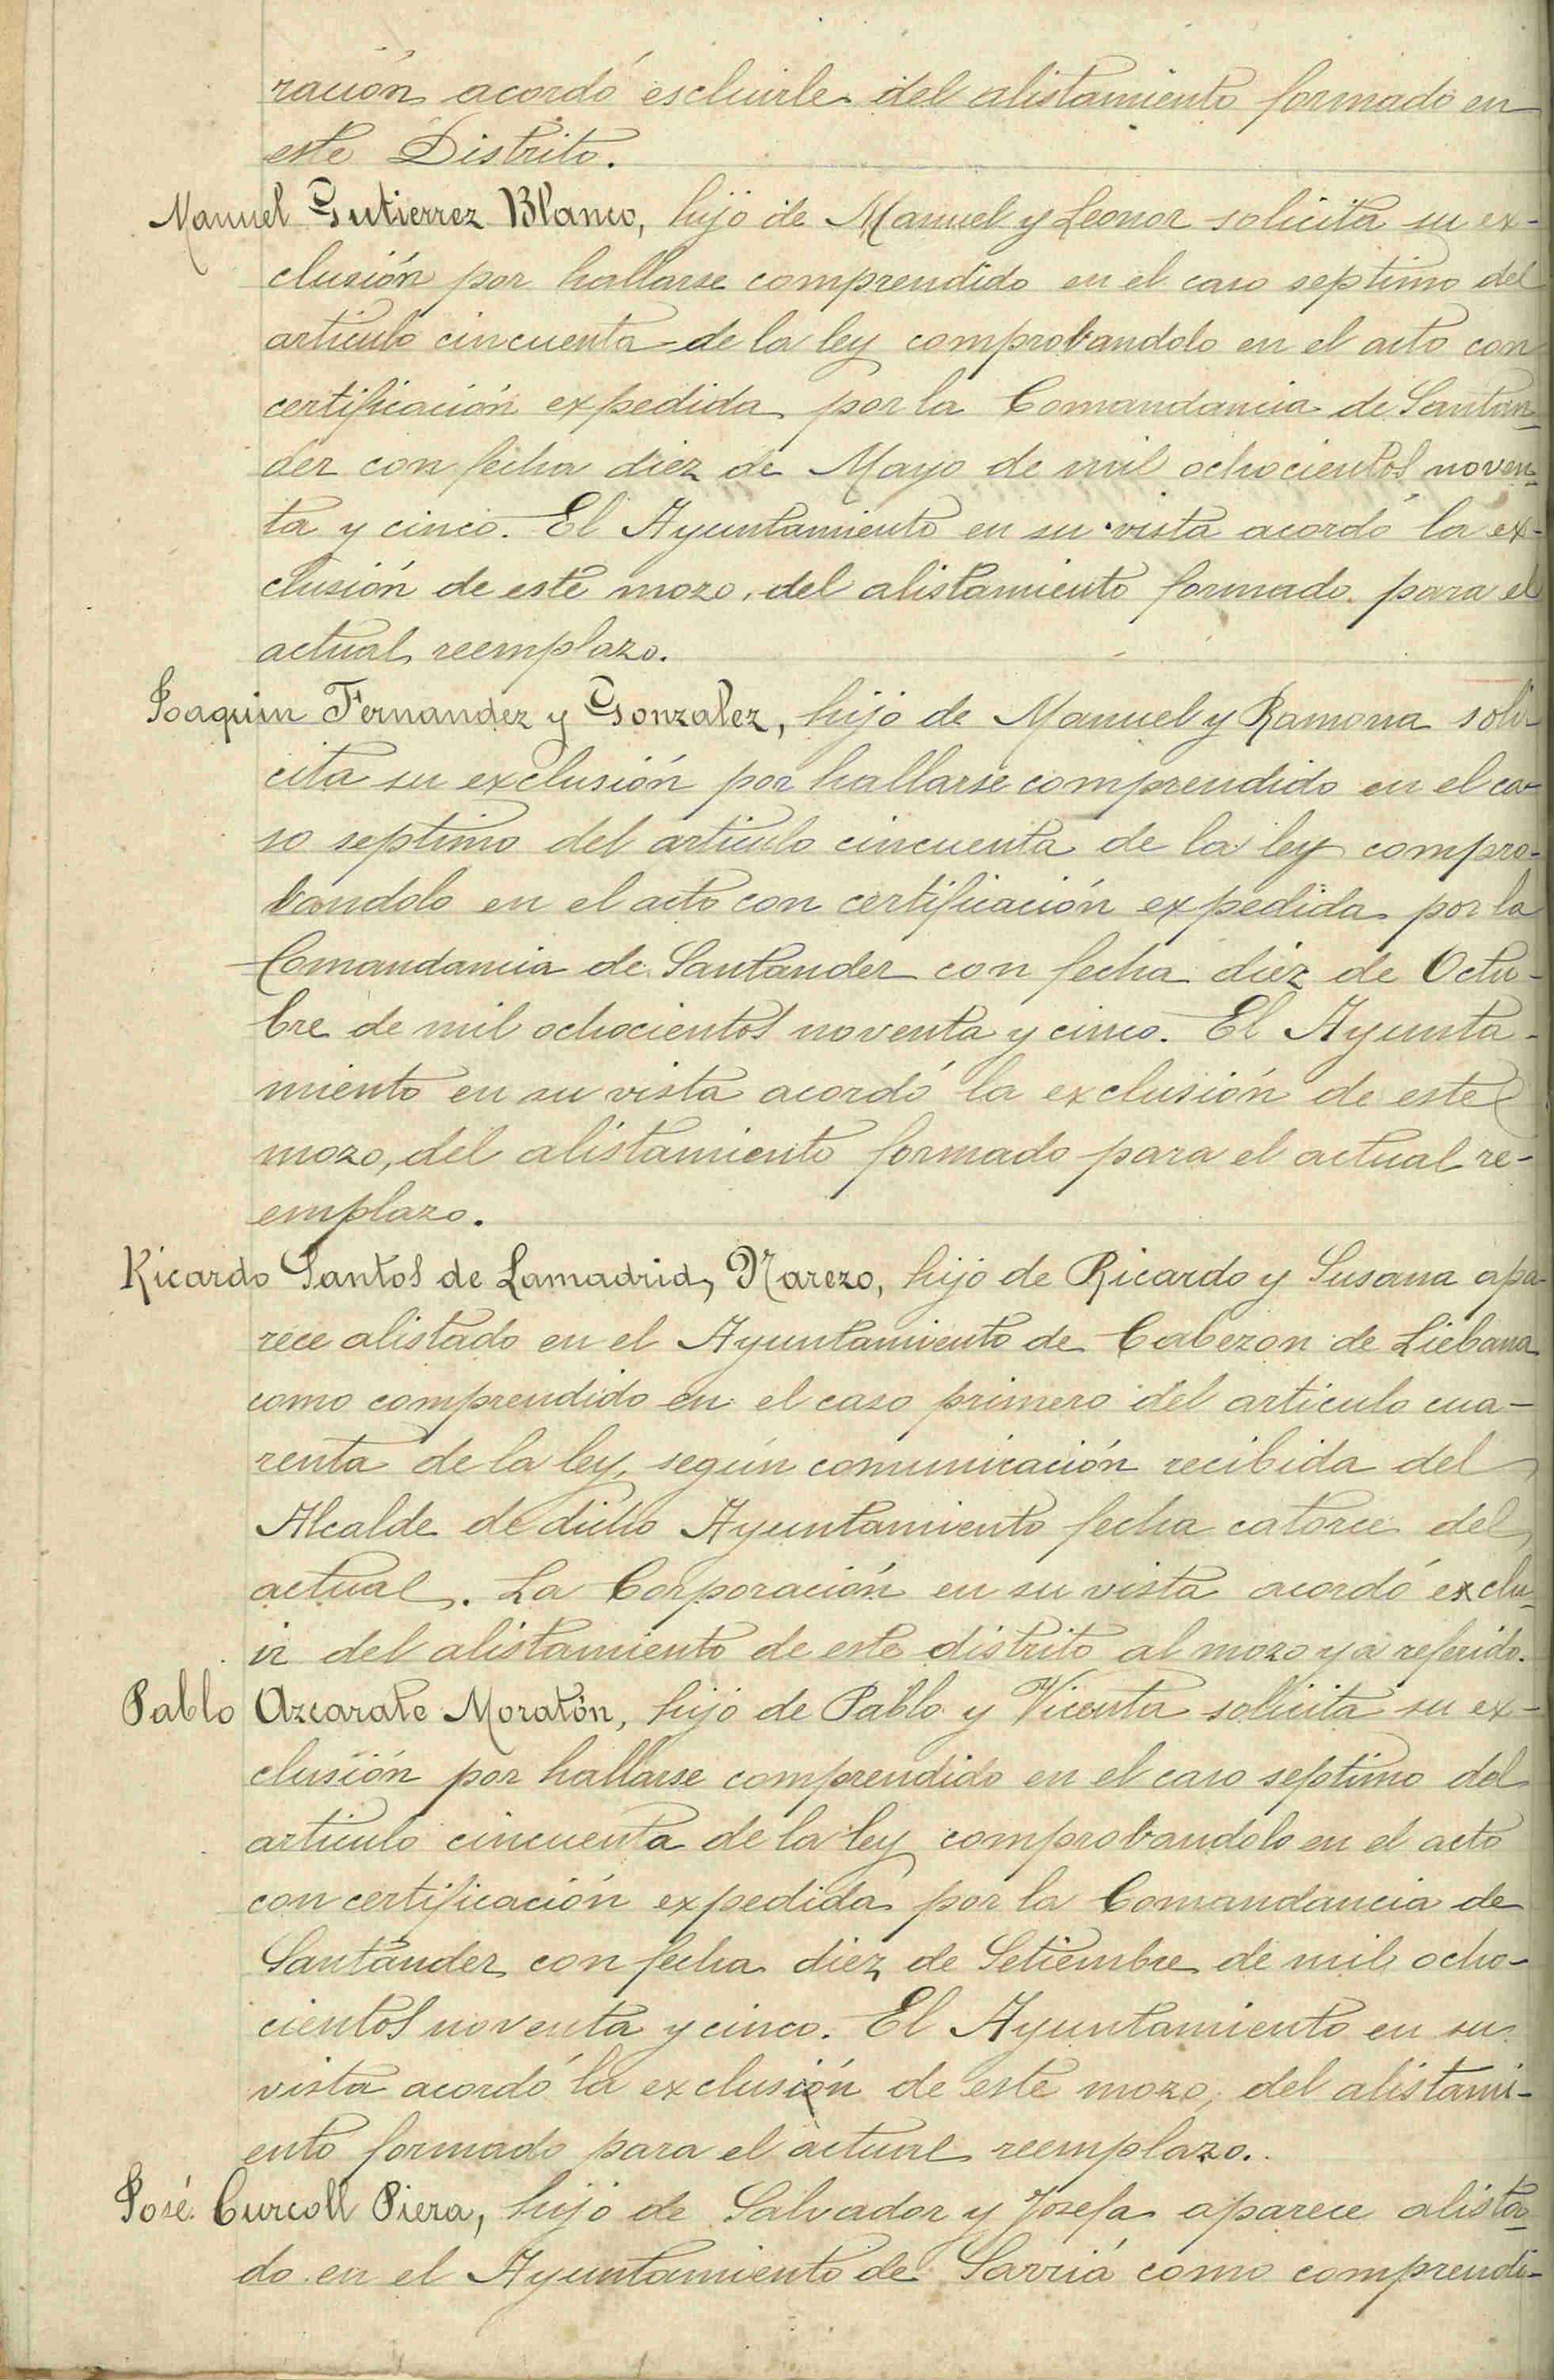 ración acordó escluirle del alistamiento formado en
este Distrito.
Manuel Gutierrez Blanco, hijo de Manuel y Leonor solicita su ex-
clusión por hallarse comprendido en el caso septimo del
articulo cincuenta de la ley comprobandolo en el acto con
certificación expedida por la Comandancia de Santan-
der con fecha diez de Mayo de mil ochocientos noven-
ta y cinco. El Ayuntamiento en su vista acordó la ex-
clusión de este mozo, del alistamiento formado para el
actual reemplazo.
Joaquin Fernandez y Gonzalez, hijo de Manuel y Ramona soli-
cita su exclusión por hallarse comprendido en el ca-
so septimo del articulo cincuenta de la ley compro-
bandolo en el acto con certificación expedida por la
Comandancia de Santander con fecha diez de Octu-
bre de mil ochocientos noventa y cinco. El Ayunta-
miento en su vista acordó la exclusión de este
mozo, del alistamiento formado para el actual re-
emplazo.
Ricardo Santos de Lamadrid, Narezo, hijo de Ricardo y Susana apa-
rece alistado en el Ayuntamiento de Cabezon de Liebana
como comprendido en el caso primero del articulo cua-
renta de la ley, según comunicación recibida del
Alcalde de dicho Ayuntamiento fecha catorce del
actual. La Corporación en su vista acordó exclu-
ir del alistamiento de este distrito al mozo ya referido.
Pablo Azcarate Moratón, hijo de Pablo y Vicenta solicita su ex-
clusión por hallarse comprendido en el caso septimo del
articulo cincuenta de la ley comprobandolo en el acto
con certificación expedida por la Comandancia de
Santander con fecha diez de Setiembre de mil ocho-
cientos noventa y cinco. El Ayuntamiento en su
vista acordó la exclusión de este mozo, del alistami-
ento formado para el actual reemplazo.
José Curcoll Piera, hijo de Salvador y Josefa aparece alista-
do en el Ayuntamiento de Sarriá como comprendi-